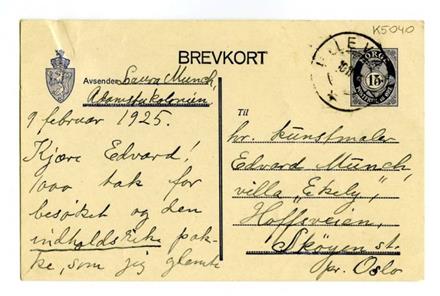 K5040
BREVKORT
NORGE
15
Avsender Laura Munch,
9 februar 1925.
Kjære Edvard!
1000 tak for
besøket og den
indholdsrik pak-
ke, som jeg glemte
Til
hr. kunstmaler
Edvard Munch,
villa "Ekely",
Hoffsveien,
Skøyen st.
pr. Oslo